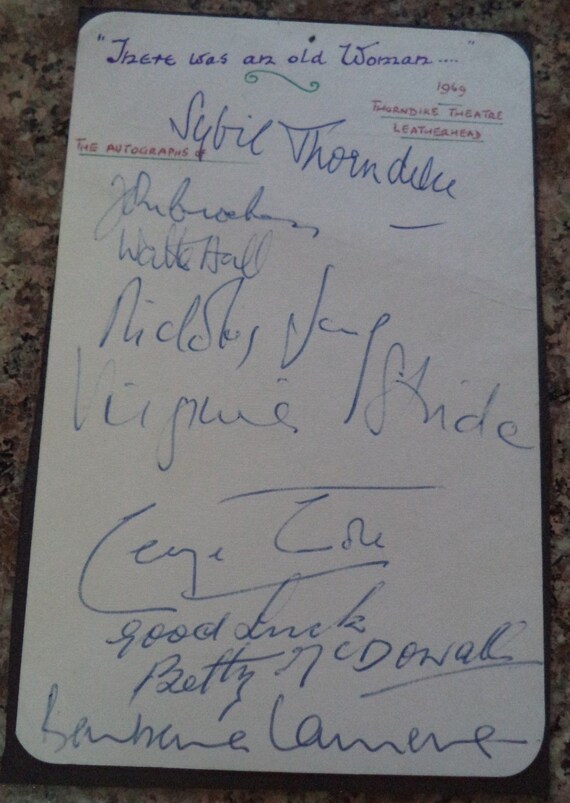 "There was an old Woman ...."
1969
THORNDIKE THEATRE
LEATHERHEAD
THE AUTOGRAPHS of
Sybil Thorndike
Walter Hall
Nicholas
Virginia Stride
George Cole
Good Luck
Betty McDowall
Barbara